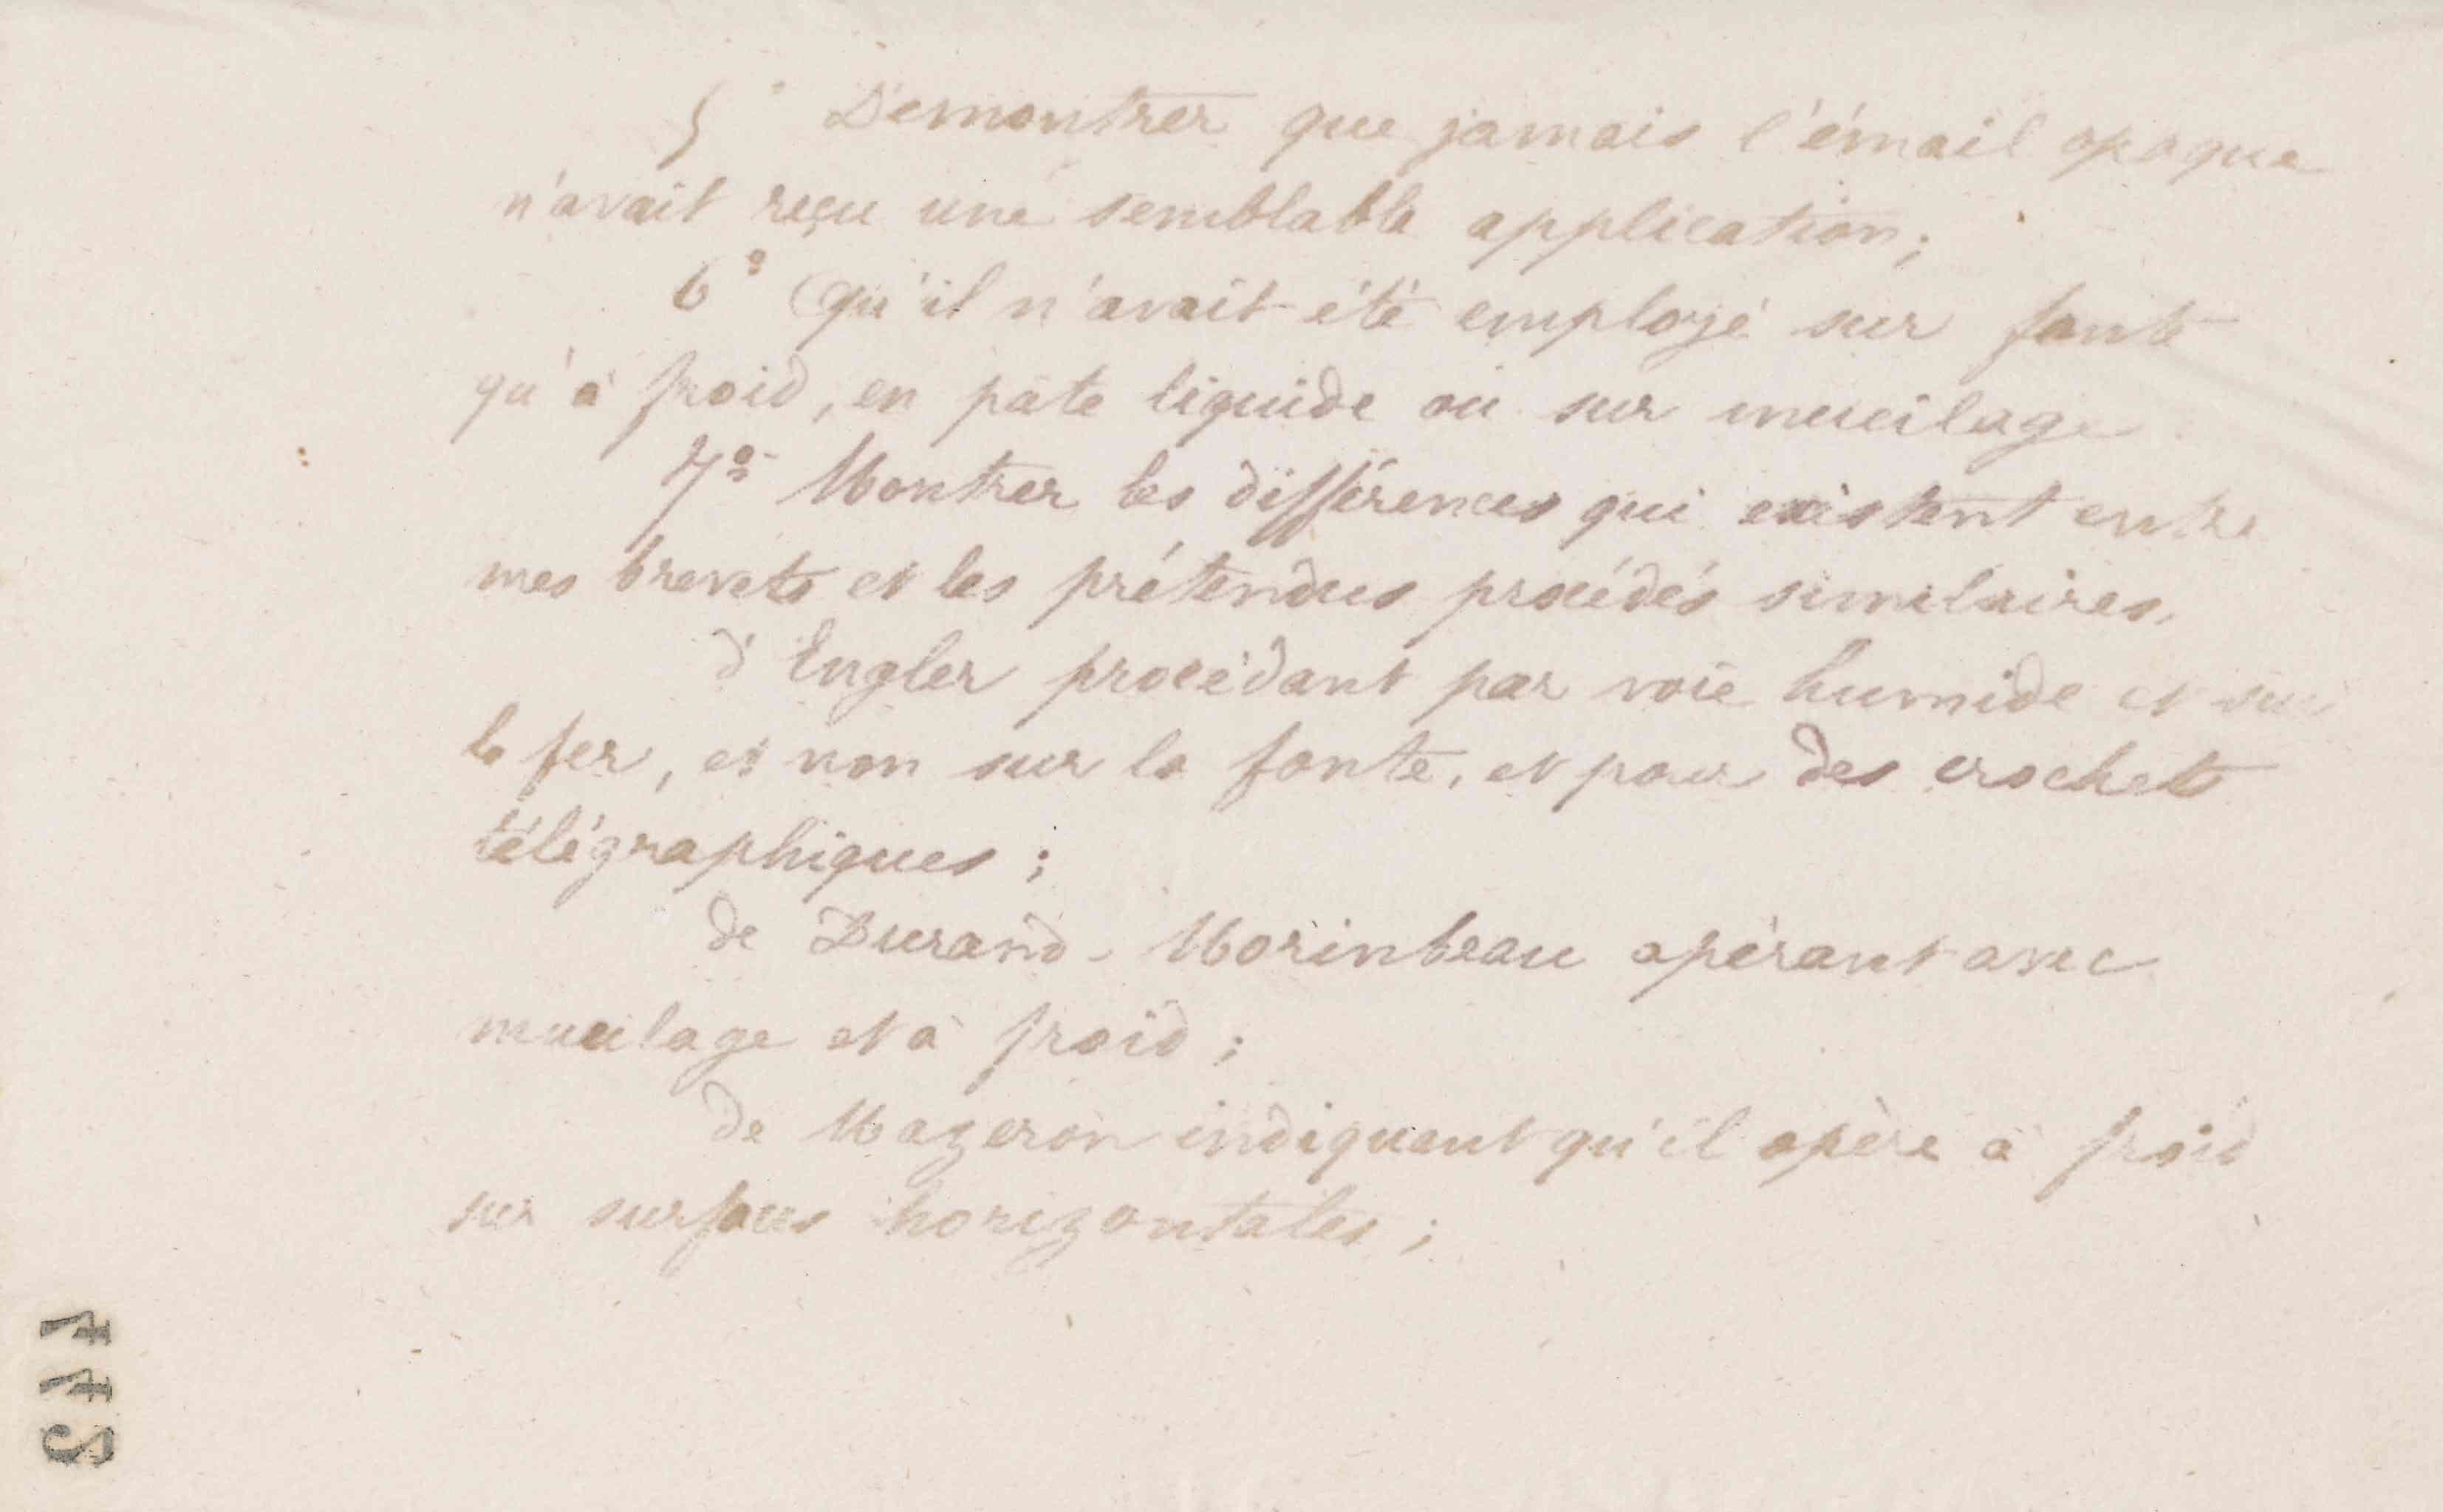 5° Démontrer que jamais l'émail opaque
n'avait reçu une semblable application;
6° Qu'il n'avait été employé sur fonte
qu'à froid, en pâte liquide ou sur mucilage
7° Montrer les différences qui existent entre
mes brevets et les prétendus procédés similaires,
d'Engler procédant par voie humide et sur
le fer, et non sur la fonte, et pour des crochets
télégraphiques;
de Durand-Morinbeau opérant avec
mucilage et à froid;
de Mazeron indiquant qu'il opère à froid
sur surfaces horizontales;